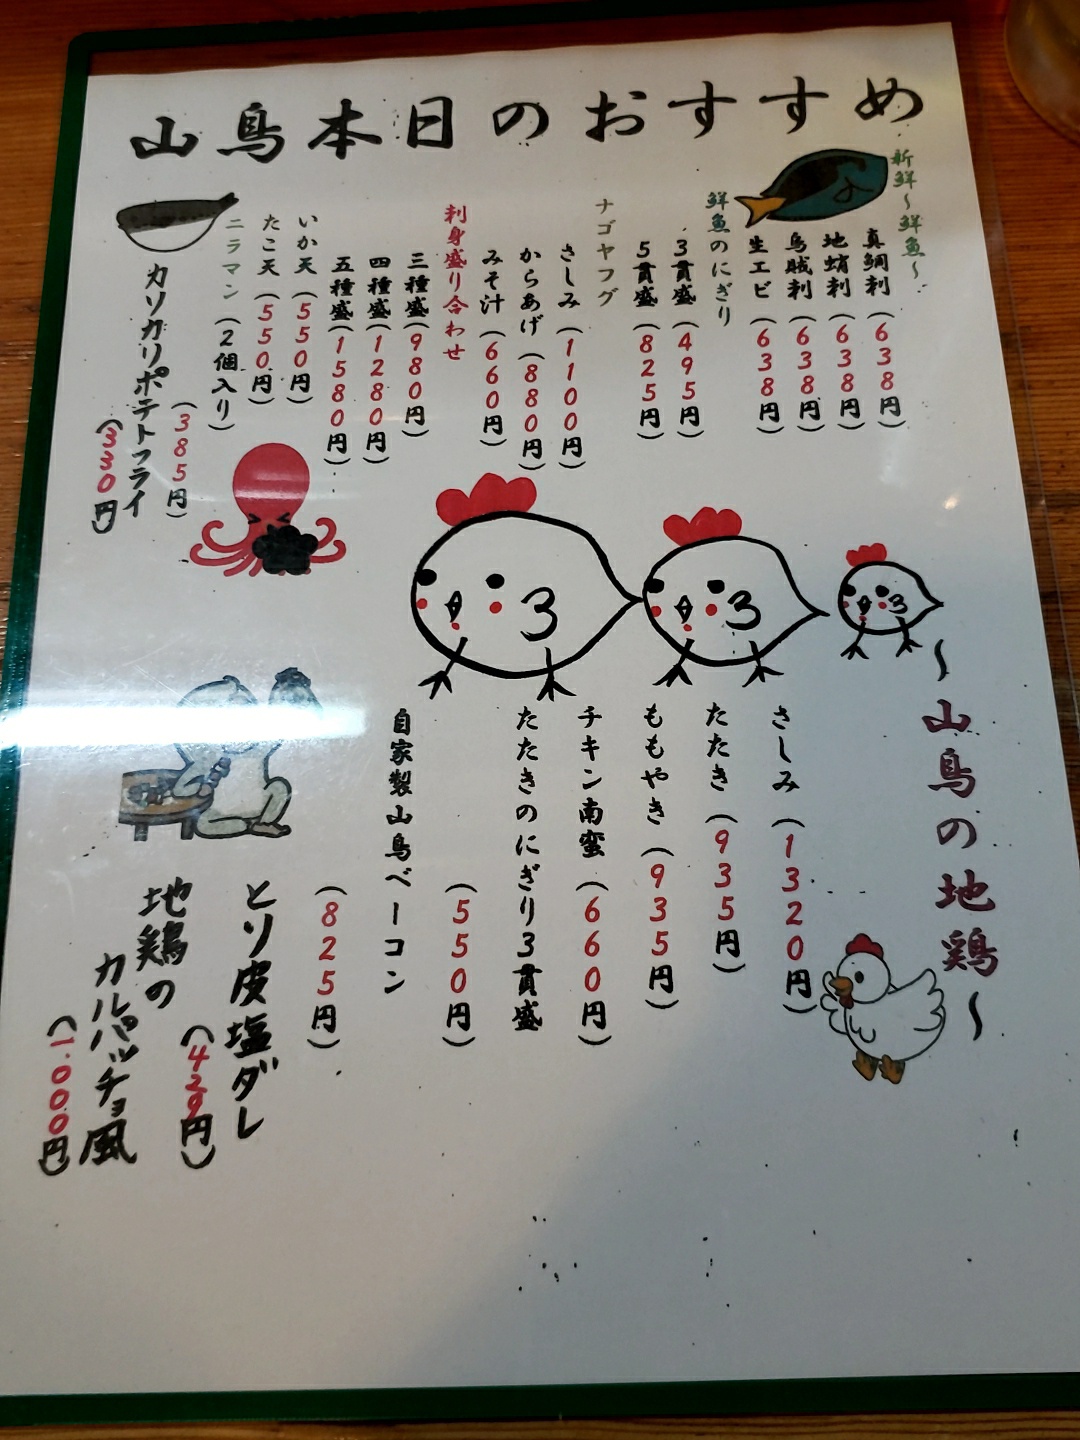 山鳥本日のおすすめ
新鮮~鮮魚~
真鯛刺(638円)
地蛸刺(638円)
烏賊刺(638円)
生エビ(638円)
鮮魚のにぎり
3貫盛(495円)
5貫盛(825円)
ナゴヤフグ
さしみ(1100円)
からあげ(880円)
みそ汁(660円)
刺身盛り合わせ
三種盛(980円)
四種盛(1280円)
五種盛(1580円)
いか天(550円)
たこ天(550円)
ニラマン(2個入り)
(385円)
カリカリポテトフライ
(330円)
~山鳥の地鶏~
さしみ(1320円)
たたき(935円)
ももやき(935円)
チキン南蛮(660円)
たたきのにぎり3貫盛
(550円)
自家製山鳥ベーコン
(825円)
とり皮塩ダレ
(429円)
地鶏の
カルパッチョ風
(1000円)